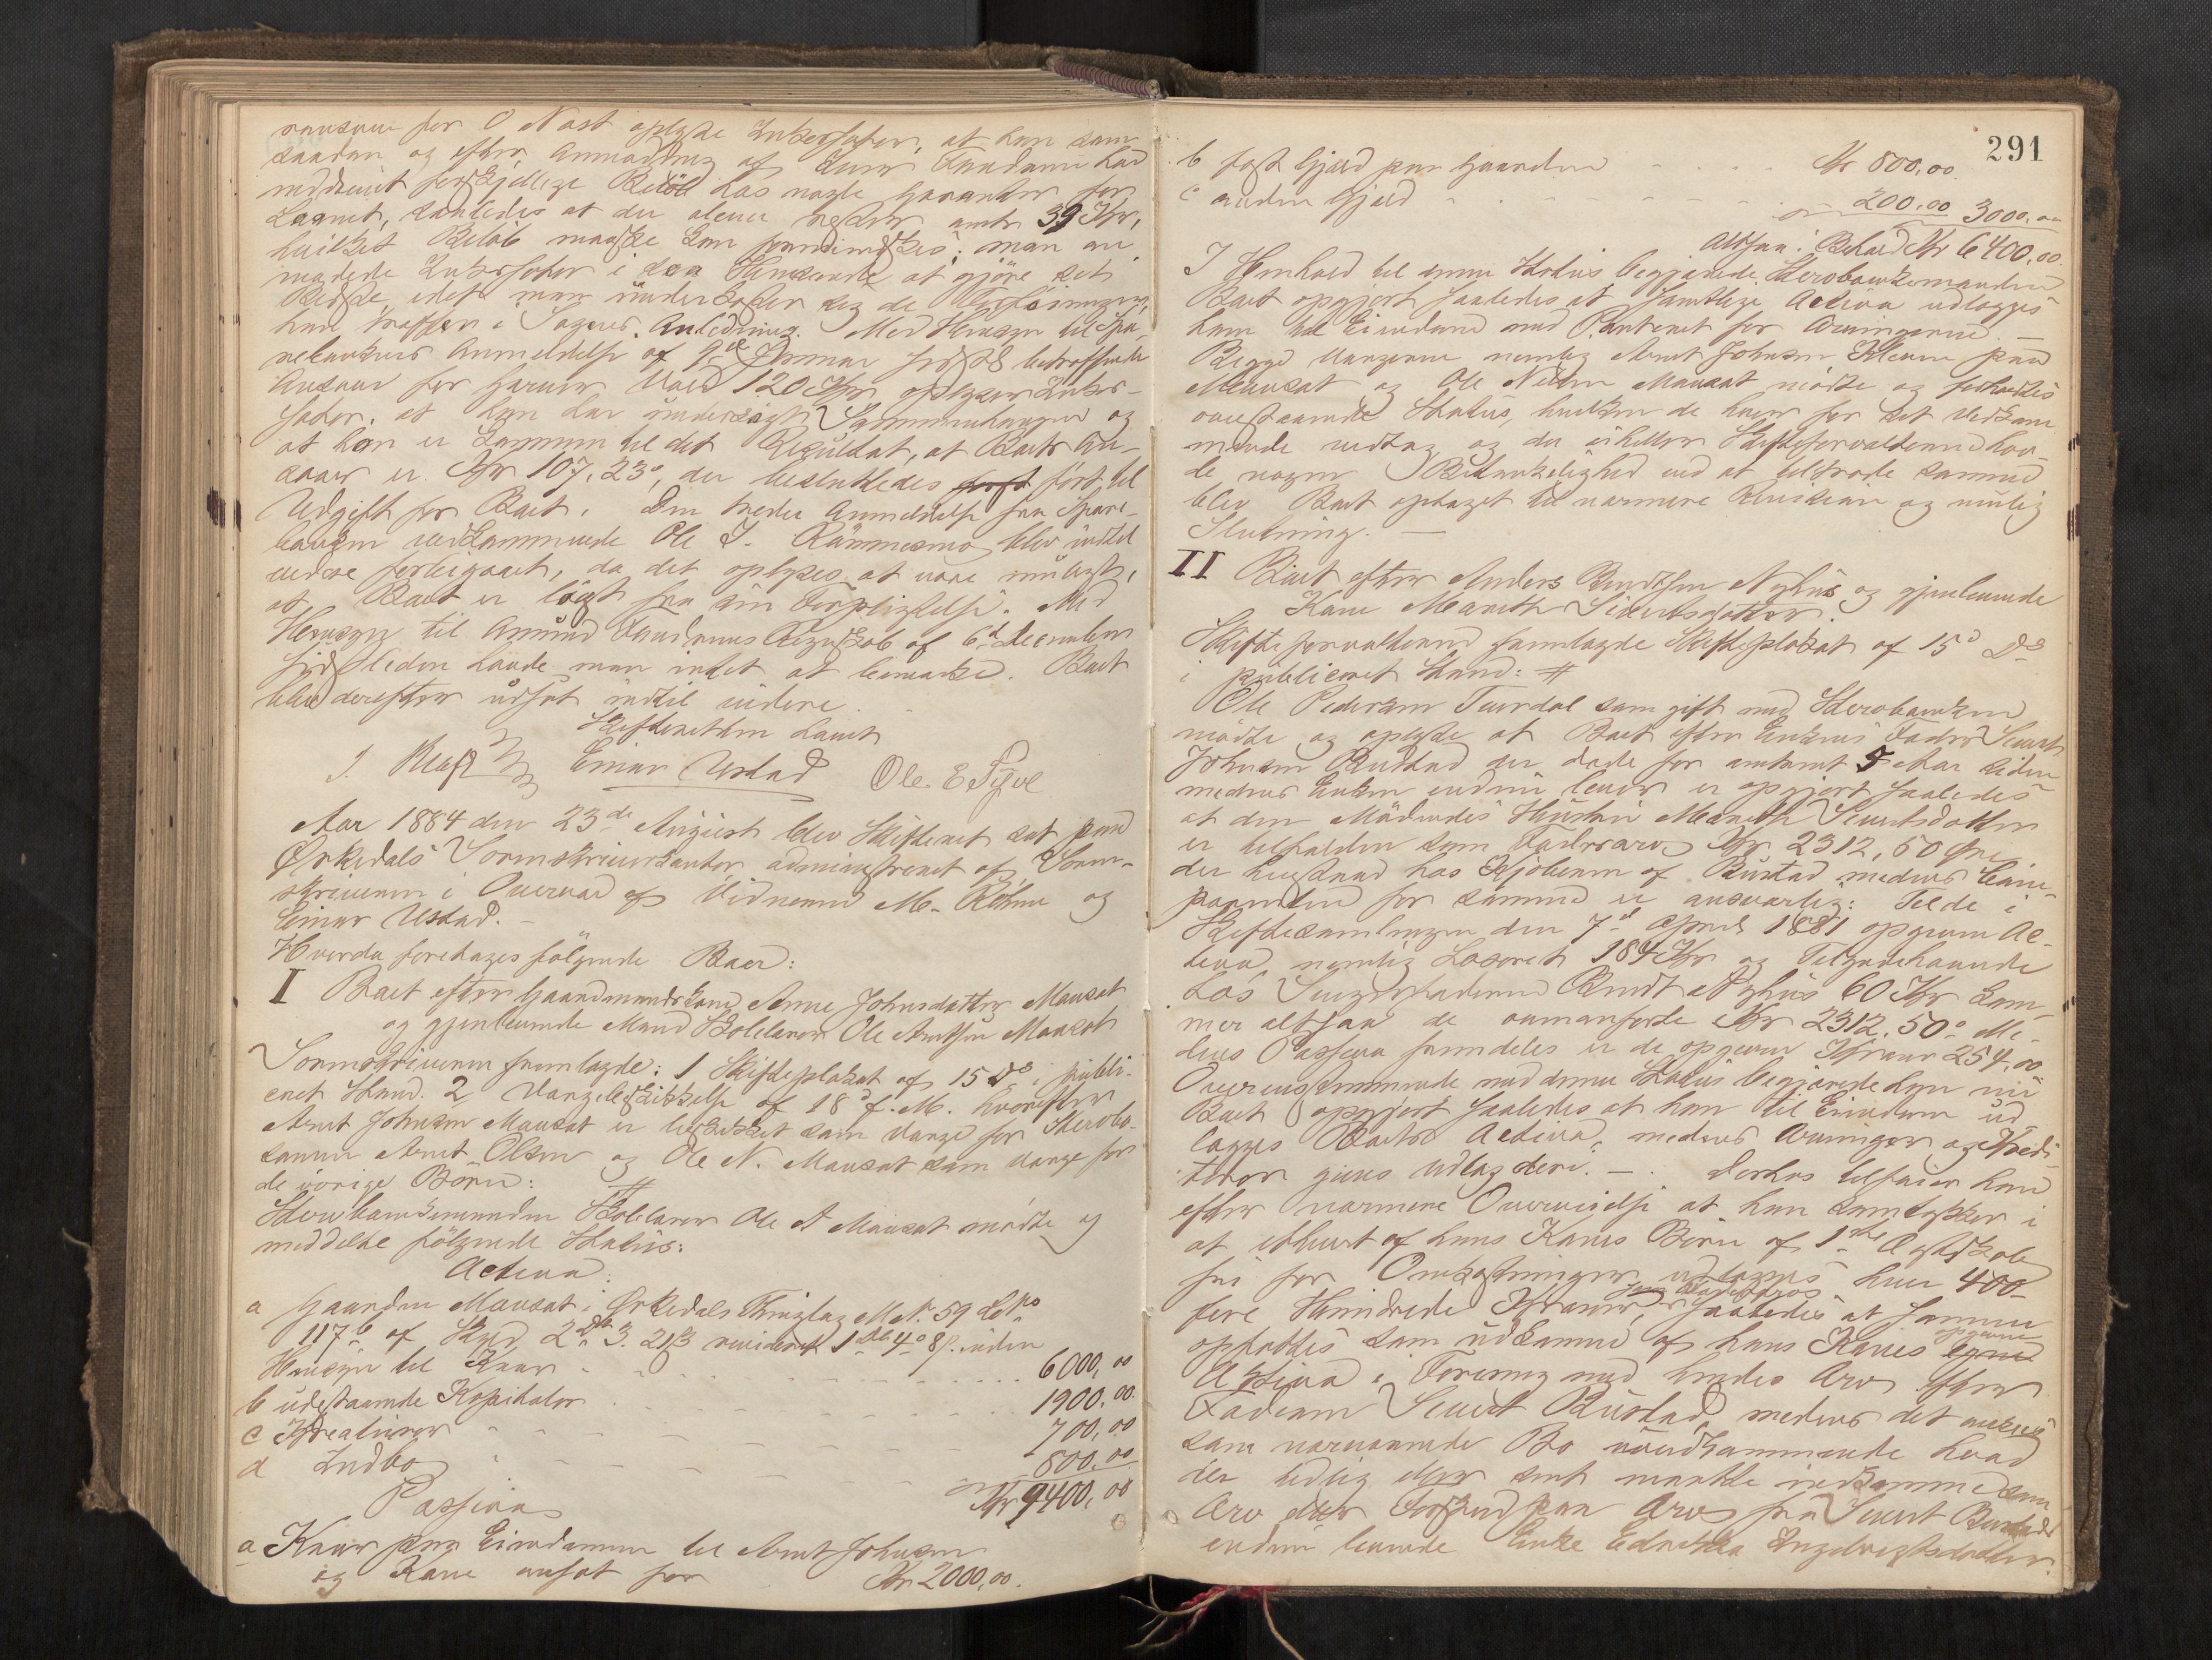 ransvar for O Nast oplyste Inkassator, at han som
saadan og efter Anmodning af Lars Aamdame har
inddrevet forskjellige Beløb hos nogle Garanter for
Laanet, saaledes at der alene rester endnu 39 Kr,
hvilket Beløb maaske kan forventes; man an
modede Inkassator i saa Henseende at gjøre det
Bedste, idet man underkaster sig de
han træffer i Sagens Anledning. Med Hensyn til Spa-
rebankens Anmeldelse af 9de Januar sidstl. betræffende
Ansvar for Garanti Stor 120 Kr oplyser Inkas-
sator, at han har undersøgt Sammenhængen og
at han er kommen til det Resultat, at Boets An-
svar er Kr 107,23 o, der besluttedes ført til
Udgift for Boet. Den tredie Anmeldelse fra Spare-
banken vedkommende Ole J. Rømmesmo blev indtil
videre forbigaaet, da det oplyses at være muligt,
at Boet er løst fra sin Forpligtelse. Med
Hensyn til Amund Aamdames Regnskab af 6te December
sidstleden havde man intet at bemærke. Boet
blev derefter udsat indtil videre.
Skifteretten hævet
Einar Ustad Ole E Fyve
Aar 1884 den 23de August blev Skifteret sat paa
Ørkedals Sorenskriverkontor, administreret af Soren-
skriveren i Overvær af Vidnerne M. Röhne og
Einar Ustad.
Hvorda foretages følgende Boer:
I Boet efter Gaardmandskone Anne Johnsdatter Mausat
og gjenlevende Mand Skolelærer Ole Arntsen Mausat
Sorenskriveren fremlagde: 1 Skifteplakat af 15 ds i publi-
ceret Stand. 2 Værgebeskikkelse af 18 f. M. hvorefter
Arnt Johnsen Mausat er beskikket som Værge for Stervbo-
sønnen Arnt Olsen og Ole N. Mausat som Værge for
de øvrige Børn: #
Stervboenkemanden Skolelærer Ole A Mausat mødte og
meddelte følgende Status:
Activa:
a Gaarden Mausat i Ørkedals Thinglag M.N. 59 L.No
117b af Skyld 2 3. 21 revideret 1 4 8 uden
Hensyn til Kaar 6000,00
b udestaaende Kapitaler 1900,00
c Kreaturer 700,00
d Indbo 800,00
Kr 9400,00
Passiva
a Kaar paa Eiendommen til Arnt Johnsen
og Kone ansat for Kr 2000,00.
291
b fast Gjæld paa Gaarden Kr 800,00.
c anden Gjæld 200,00 3000,00
Altsaa: Behold Kr 6400,00
I Henhold til denne Status begjærede Stervboenkemanden
Boet opgjort saaledes at samtlige Activa udlægges
ham til Eiendom mod Panteret for Arvingerne. —
Begge Værgerne nemlig Arnt Johnsen Kleven paa
Mausat og Ole Nielsen Mausat mødte og forholdtes
ovenstaaende Status, hvilken de hver for sit Vedkom
mende vedtog og da ei heller Skifteforvalteren hav-
de nogen Betænkelighed ved at tiltræde samme
blev Boet optaget til nærmere Revision og mulig
Slutning. —
II Boet efter Anders Bendtsen Nyhus og gjenlevende
Kone Mareth Sivertsdatter.
Skifteforvalteren fremlagde Skifteplakat af 15 ds
i publiceret Stand: #
Ole Pedersen Tuvdal som gift med Stervboenken
mødte og oplyste at Boet efter Enkens Fader Sivert
Johnsen Bustad der døde for omtrent 5 Aar siden
medens Enken endnu lever er opgjort saaledes
at den Mødendes Hustru Mareth Sivertsdatter
er tilfalden som Fædrearv Kr 2312,50 Øre,
der henstaar hos Kjøberen af Bustad, medens Eien-
dommen for samme er ansvarlig: Til de i
Skiftesamlingen den 7de April 1881 opgivne Ac-
tiva, nemlig Løsøret 184 Kr og Tilgodehavende
hos Svigerfaderen Bendt Nyhus 60 Kr kom-
mer altsaa de ovenanførte Kr 2312.50 o Me-
dens Passiva fremdeles er de opgivne Kroner 254,00
Overensstemmende med denne Status begjærede han nu
Boet opgjort saaledes at ham til Eiendom ud-
lægges Boets Activa, medens Arvinger og Kredi-
torer gives Udlæg deri. — Derhos tilføier han
efter nærmere Overveielse at han samtykker i
at ethvert af hans Kones Børn af 1ste Ægteskab
fri for Omkostninger udlægges hver 400
fire Hundrede Kroner, saaledes at samme
opfattes som udkomne af hans Kones egne opgivne
Activa i Forening med hendes Arv efter
Faderen Sivert Bustad, medens det ansees
som nærværende Bo uvedkommende hvad
der tidlig eller sent maatte indkomme som
Arv eller Forskud paa Arv fra Sivert Bustads
endnu levende Enke Ingebrigtsdatter.